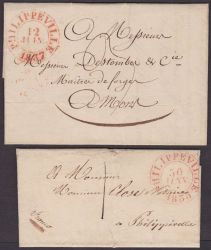 PHILIPPEVILLE
12
JUIN
1837
A Messieurs
Messieurs Destombes & Cie
Maitres de forges
A Mons
PHILIPPEVILLE
30
1839
A Monsieur
Monsieur
à Philippeville